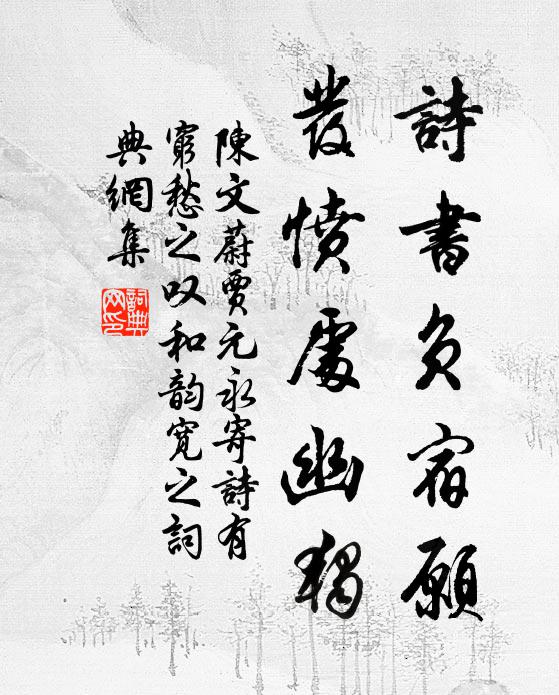 詩書負宿願
發憤處幽獨
陳文蔚賈元永寄詩有
窮愁之叹和韵寬之詞
典網集
詞典
网印